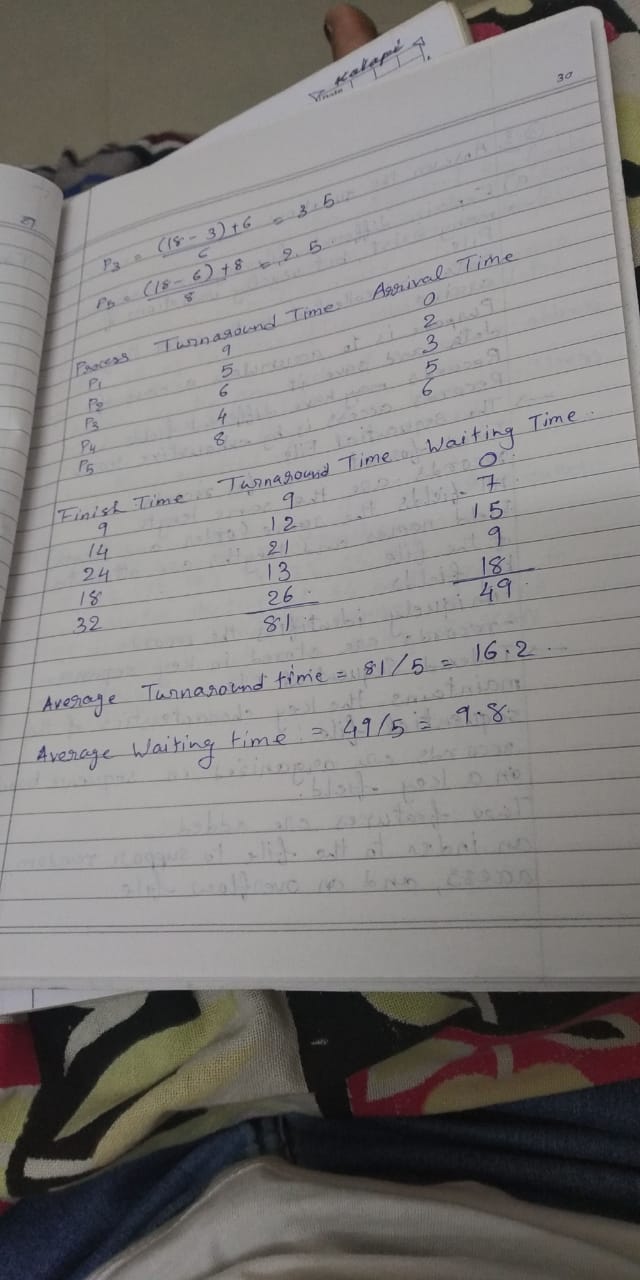 Kalapi
30
P3 = (18 - 3) + 6 / 6 = 3.5
P5 = (18 - 6) + 8 / 8 = 2.5
Process Turnaround Time Arrival Time
P1 9 0
P2 5 2
P3 6 3
P4 4 5
P5 8 6
Finish Time Turnaround Time Waiting Time
9 9 0
14 12 7
24 21 15
18 13 9
32 26 18
81 49
Average Turnaround time = 81/5 = 16.2
Average Waiting time = 49/5 = 9.8